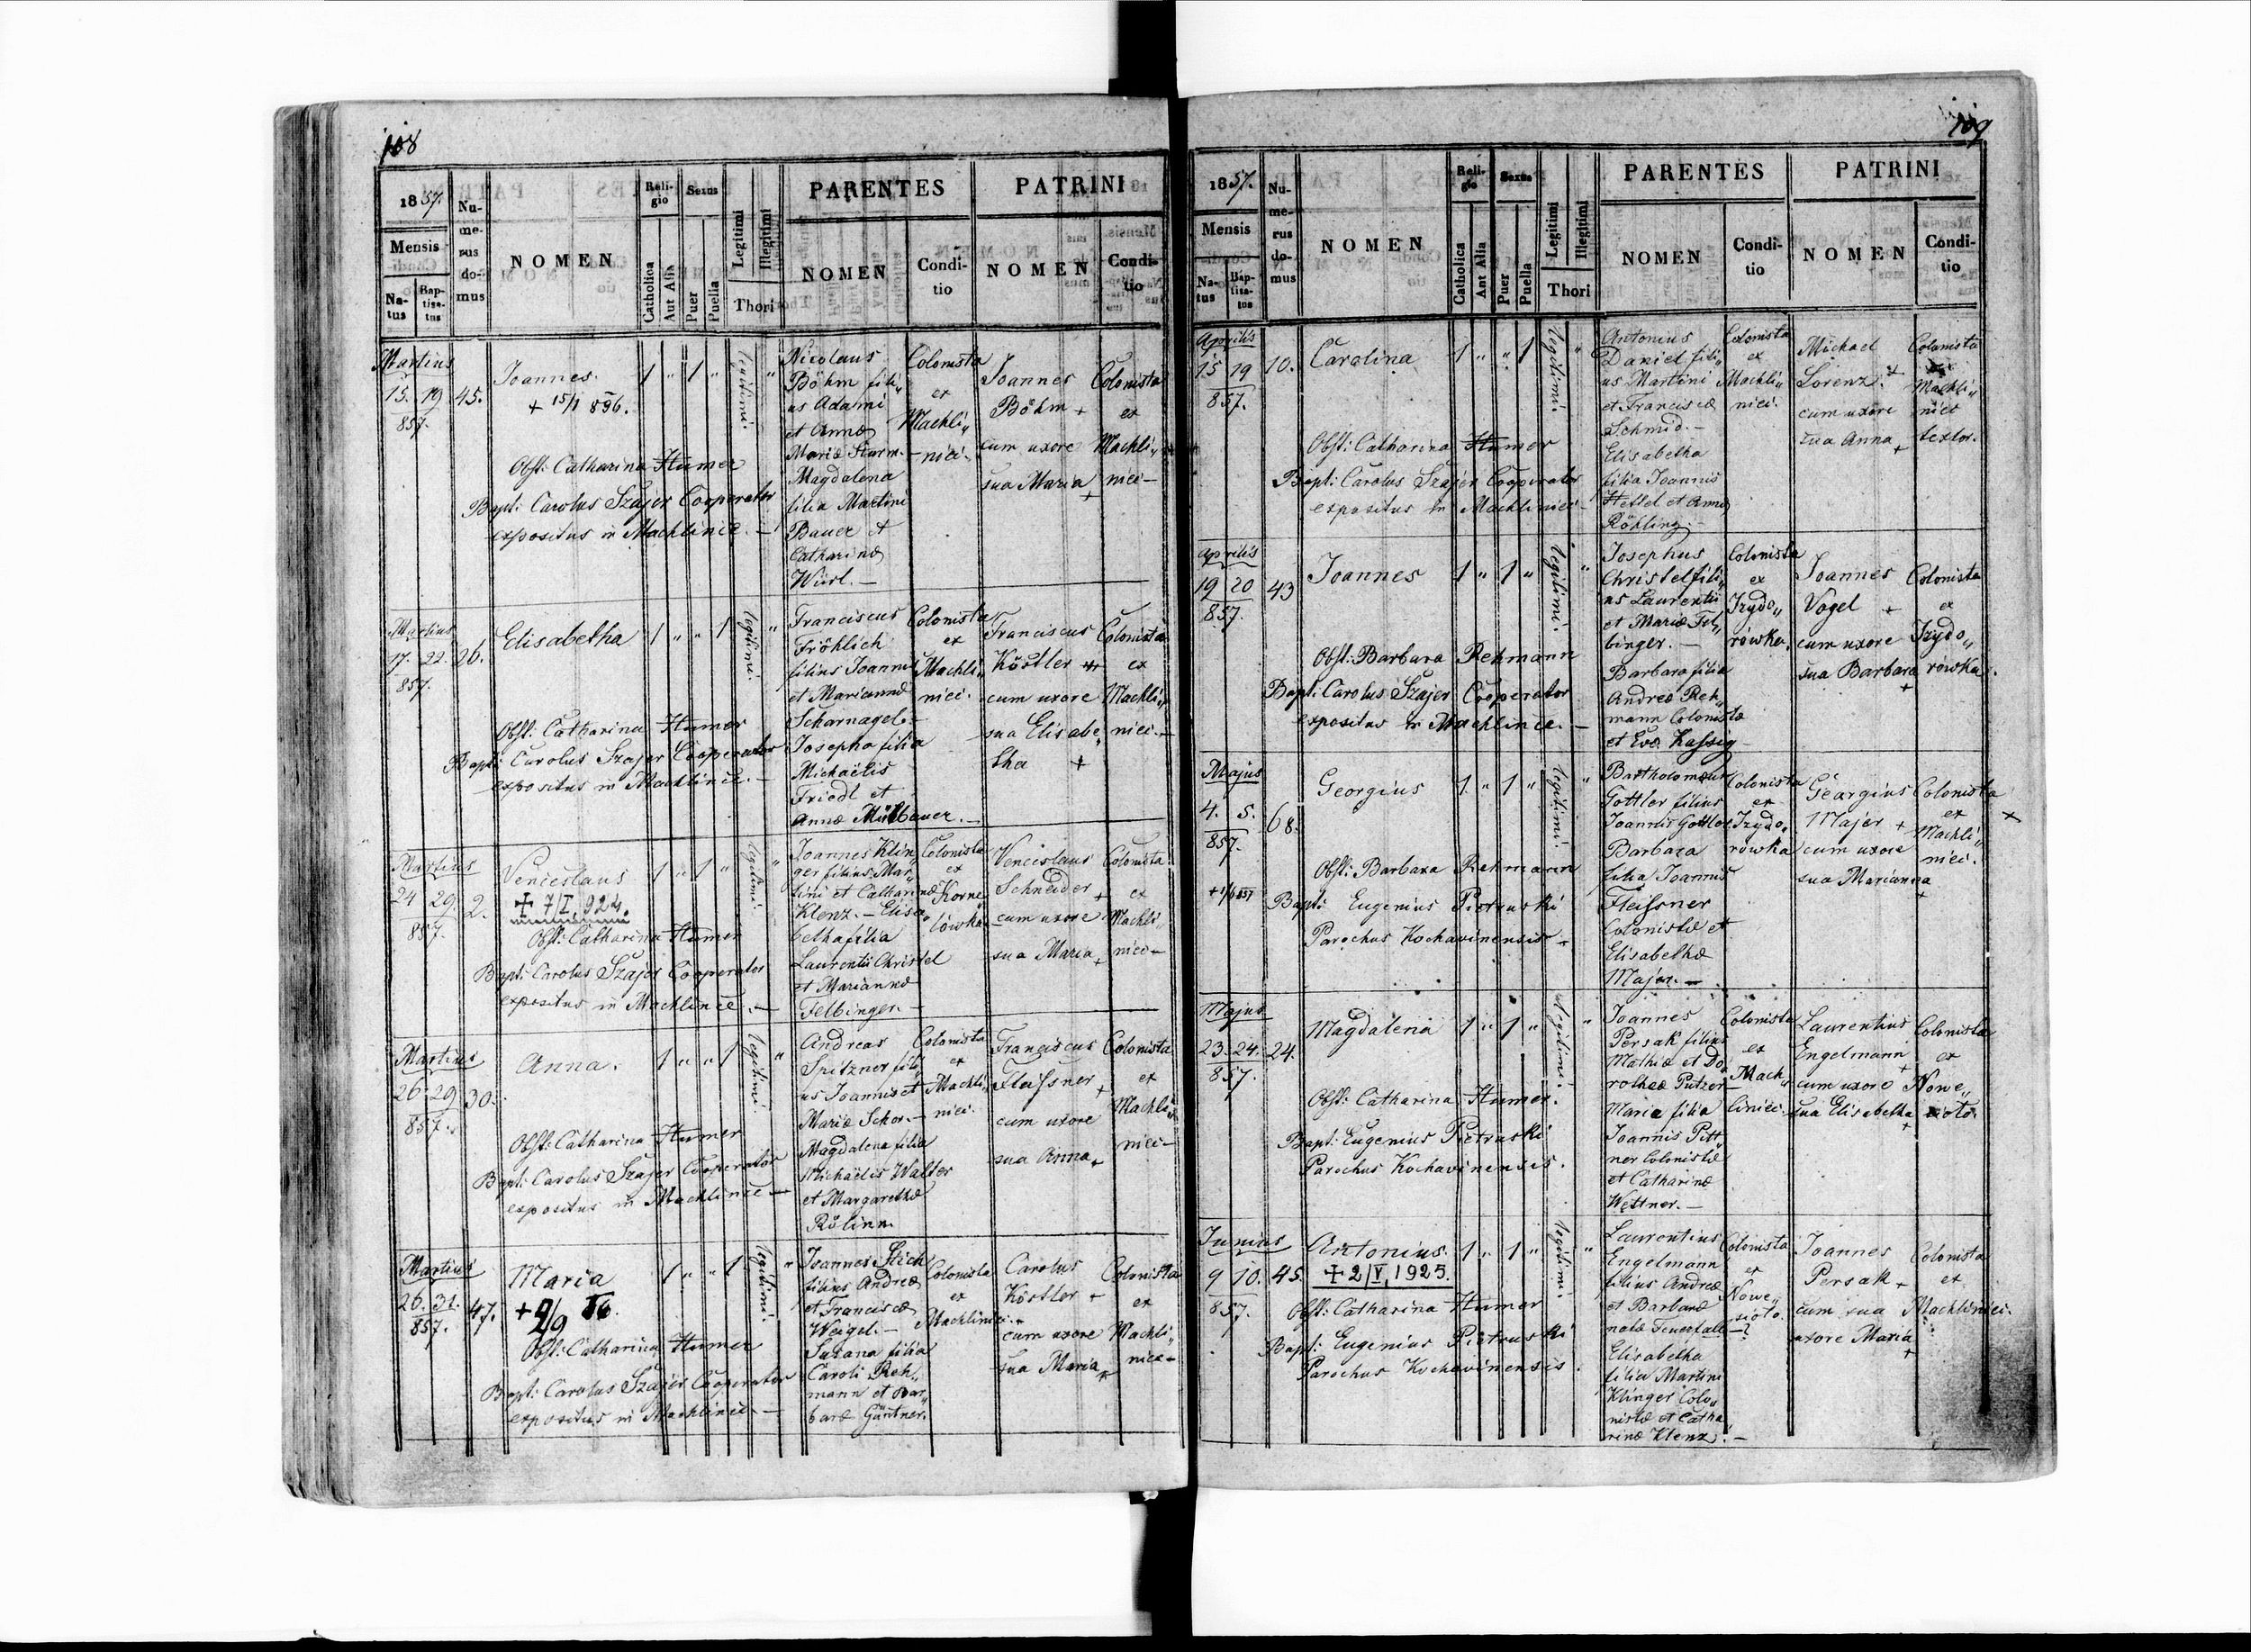 108
1857.
Mensis
Na-
tus
Bap-
tisa-
tus
Nu-
me-
rus
do-
mus
NOMEN
Reli-
gio
Catholica
Aut Alia
Sexus
Puer
Puella
Legitimi
Illegitimi
Thori
PARENTES
NOMEN
Condi-
tio
PATRINI
NOMEN
Condi-
tio
Martius
15. 19
857.
45.
Joannes.
+ 15/1 896.
Obst: Catharina Humer
Bapt: Carolus Szajer Cooperator
expositus in Machlince. —
1 " 1 "
legitimi.
"
Nicolaus
Böhm fili„
us Adami
et Annæ
Mariæ Sturm. —
Magdalena
filia Martini
Bauer et
Catharinæ
Würl. —
Colonista
ex
Machli„
nici.
Joannes
Böhm +
cum uxore
sua Maria +
Colonista
ex
Machli„
nici —
Martius
17. 22.
857.
26.
Elisabetha
Obst: Catharina Humer
Bapt: Carolus Szajer Cooperator
expositus in Machlince. —
1 " " 1
legitimi.
"
Franciscus
Fröhlich
filius Joannis
et Mariannæ
Scharnagel. —
Josepha filia
Michaëlis
Friedl et
Annæ Mülbauer. —
Colonista
ex
Machli„
nici.
Franciscus
Köstler +
cum uxore
sua Elisabe„
tha +
Colonista
ex
Machli„
nici. —
Martius
24 29.
857.
2.
Venceslaus
+ 7/I. 924.
Obst: Catharina Humer
Bapt: Carolus Szajer Cooperator
expositus in Machlince. —
1 " 1 "
legitimi.
"
Joannes Klin„
ger filius Mar„
tini et Catharinæ
Klenz. — Elisa„
betha filia
Laurentii Christel
et Mariannæ
Felbinger. —
Colonista
ex
Korne„
lówka —
Venceslaus
Schneider +
cum uxore
sua Maria +
Colonista
ex
Machli„
nici —
Martius
26. 29
857.
30.
Anna.
Obst: Catharina Humer
Bapt: Carolus Szajer Cooperator
expositus in Machlince —
1 " " 1
legitimi.
"
Andreas
Spitzner fili„
us Joannis et
Mariæ Schor. —
Magdalena filia
Michaëlis Walter
et Margarethæ
Rölinn.
Colonista
ex
Machli„
nici.
Franciscus
Fleissner +
cum uxore
sua Anna +
Colonista
ex
Machli„
nici —
Martius
26. 31.
857.
47.
Maria
Obst: Catharina Humer
Bapt: Carolus Szajer Cooperator
expositus in Machlince. —
1 " " 1
legitimi.
"
Joannes Stich
filius Andreæ
et Franciscæ
Weigel. —
Suzana filia
Caroli Reh„
mann et Bar„
baræ Güntner.
Colonista
ex
Machlinici.
Carolus
Köstler +
cum uxore
sua Maria +
Colonista
ex
Machli„
nice —
109
1857.
Mensis
Na-
tus
Bap-
tisa-
tus
Nu-
me-
rus
do-
mus
NOMEN
Reli-
gio
Catholica
Aut Alia
Sexus
Puer
Puella
Legitimi
Illegitimi
Thori
PARENTES
NOMEN
Condi-
tio
PATRINI
NOMEN
Condi-
tio
Aprilis
15 19
857.
10.
Carolina
Obst: Catharina Humer
Bapt: Carolus Szajer Cooperator
expositus in Machlinici —
1 " " 1
legitimi.
"
Antonius
Daniel fili„
us Martini
et Franciscæ
Schmid. —
Elisabetha
filia Joannis
Hettel et Annæ
Röhling. —
Colonista
ex
Machli„
nici.
Michael
Lorenz. +
cum uxore
sua Anna +
Colonista
ex
Machli„
nice
textor.
Aprilis
19 20
857.
43
Joannes
Obst: Barbara Rehmann
Bapt: Carolus Szajer Cooperator
expositus in Machlince. —
1 " 1 "
legitimi.
"
Josephus
Christel fili„
us Laurentii
et Mariæ Fel„
binger. —
Barbara filia
Andreæ Reh„
mann Colonistæ
et Evæ Kassig
Colonista
ex
Izydo„
rówka.
Joannes
Vogel +
cum uxore
sua Barbara +
Colonista
ex
Izydo„
rówka.
Majus
4. 5.
857.
68.
Georgius
Obst: Barbara Rehmann
Bapt: Eugenius Pietruski
Parochus Kochavinensis —
1. " 1 "
legitimi.
"
Bartholomæus
Gottler filius
Joannis Gottler
Barbara
filia Joannis
Fleissner
Colonistæ et
Elisabethæ
Majer. —
Colonista
ex
Izydo„
rówka
Georgius
Majer +
cum uxore
sua Marianna
+
Colonista
ex
Machli„
nici.
Majus
23. 24.
857.
24.
Magdalena
Obst: Catharina Humer.
Bapt: Eugenius Pietruski
Parochus Kochavinensis.
1 " 1 "
legitimi.
"
Joannes
Persak filius
Mathiæ et Do„
rotheæ Putzer
Maria filia
Joannis Pitt„
ner Colonistæ
et Catharinæ
Wettner. —
Colonista
ex
Mach„
linici.
Laurentius
Engelmann +
cum uxore
sua Elisabetha +
Colonista
ex
Nowe„
sioto.
Junius
9 10.
857.
45.
Antonius.
+ 2/V. 1925.
Obst: Catharina Humer
Bapt: Eugenius Pietruski
Parochus Kochavinensis.
1 " 1 "
legitimi.
"
Laurentius
Engelmann
filius Andreæ
et Barbaræ
natæ Feuerfale
Elisabetha
filia Martini
Klinger Colo„
nistæ et Catha„
rinæ Klenz. —
Colonista
ex
Nowe„
sioto.
Joannes
Persak +
cum sua
uxore Maria
+
Colonista
ex
Machlinici.